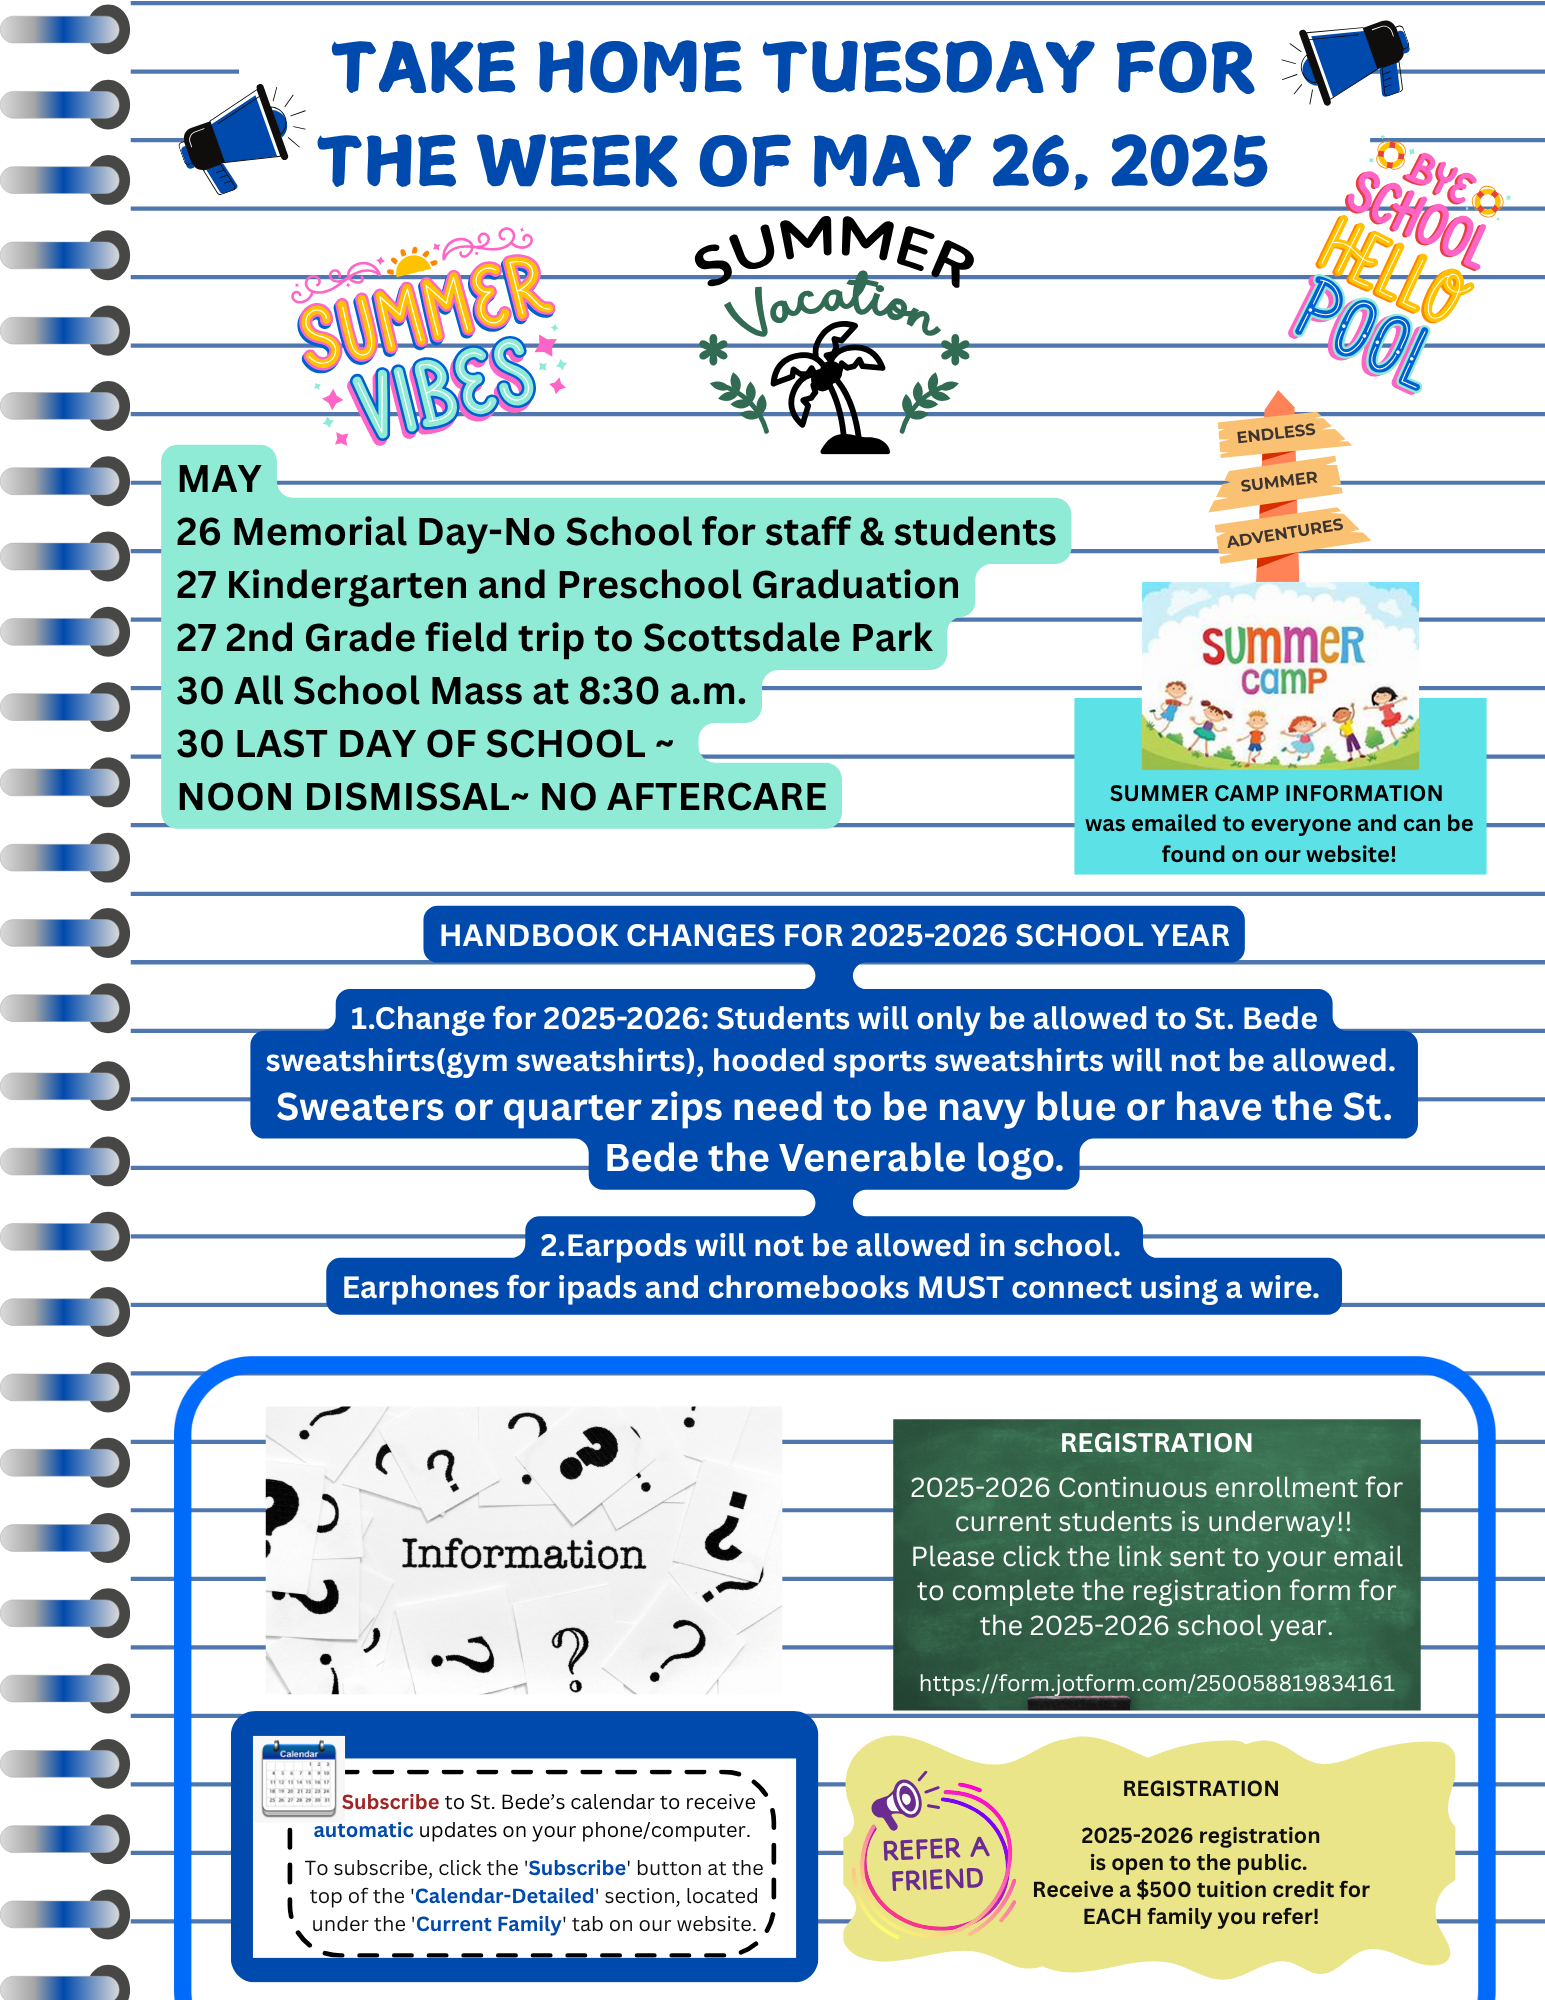 TAKE HOME TUESDAY FOR
THE WEEK OF MAY 26, 2025
BYE
SCHOOL
HELLO
POOL
SUMMER
VIBES
SUMMER
Vacation
ENDLESS
SUMMER
ADVENTURES
MAY
26 Memorial Day-No School for staff & students
27 Kindergarten and Preschool Graduation
27 2nd Grade field trip to Scottsdale Park
30 All School Mass at 8:30 a.m.
30 LAST DAY OF SCHOOL ~
NOON DISMISSAL~ NO AFTERCARE
SUMMER
CAMP
SUMMER CAMP INFORMATION
was emailed to everyone and can be
found on our website!
HANDBOOK CHANGES FOR 2025-2026 SCHOOL YEAR
1.Change for 2025-2026: Students will only be allowed to St. Bede
sweatshirts(gym sweatshirts), hooded sports sweatshirts will not be allowed.
Sweaters or quarter zips need to be navy blue or have the St.
Bede the Venerable logo.
2.Earpods will not be allowed in school.
Earphones for ipads and chromebooks MUST connect using a wire.
Information
REGISTRATION
2025-2026 Continuous enrollment for
current students is underway!!
Please click the link sent to your email
to complete the registration form for
the 2025-2026 school year.
https://form.jotform.com/250058819834161
Calendar
Subscribe to St. Bede’s calendar to receive
automatic updates on your phone/computer.
To subscribe, click the 'Subscribe' button at the
top of the 'Calendar-Detailed' section, located
under the 'Current Family' tab on our website.
REFER A
FRIEND
REGISTRATION
2025-2026 registration
is open to the public.
Receive a $500 tuition credit for
EACH family you refer!